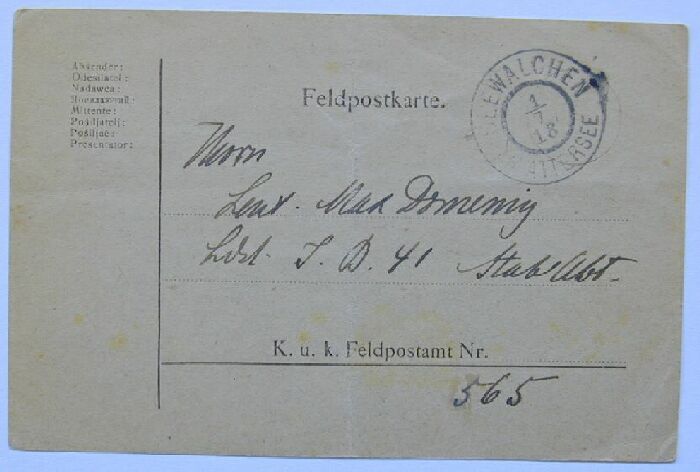 Absender:
Odesílatel:
Nadawca:
Mittente:
Pošiljatelj:
Pošiljač:
Presentator:
Feldpostkarte.
SEEWALCHEN
1
7
18
ATTERSEE
Herrn
Leut. Max Domenig
Ldst. I. B. 41 Stab Abt.
K. u. k. Feldpostamt Nr.
565